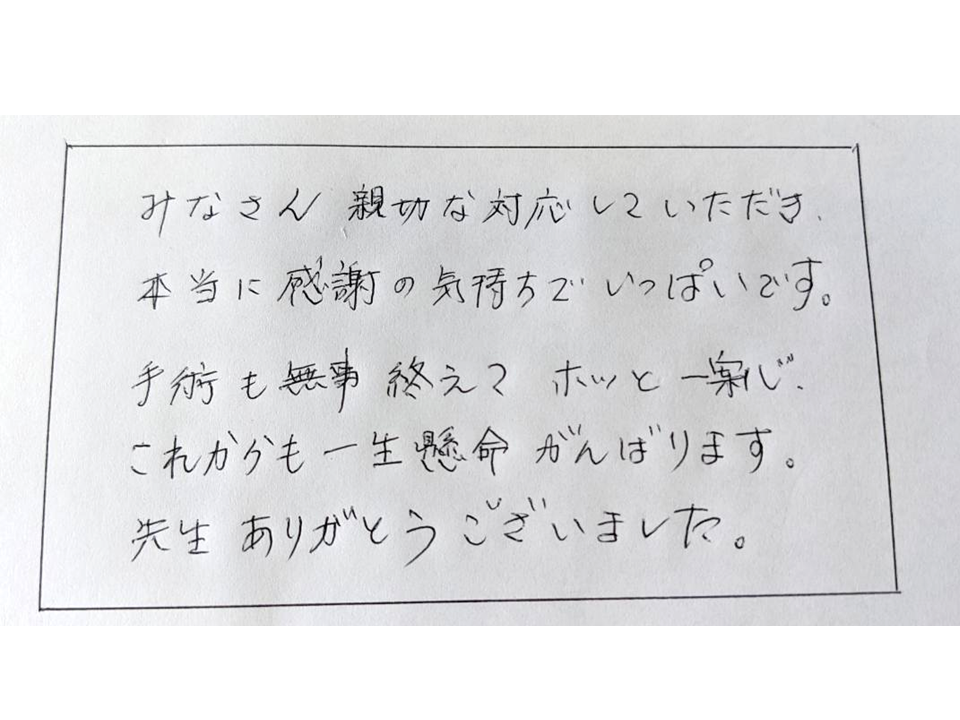 みなさん 親切な対応していただき、
本当に感謝の気持ちでいっぱいです。
手術も無事終えてホッと一案じ、
これからも一生懸命がんばります。
先生ありがとうございました。